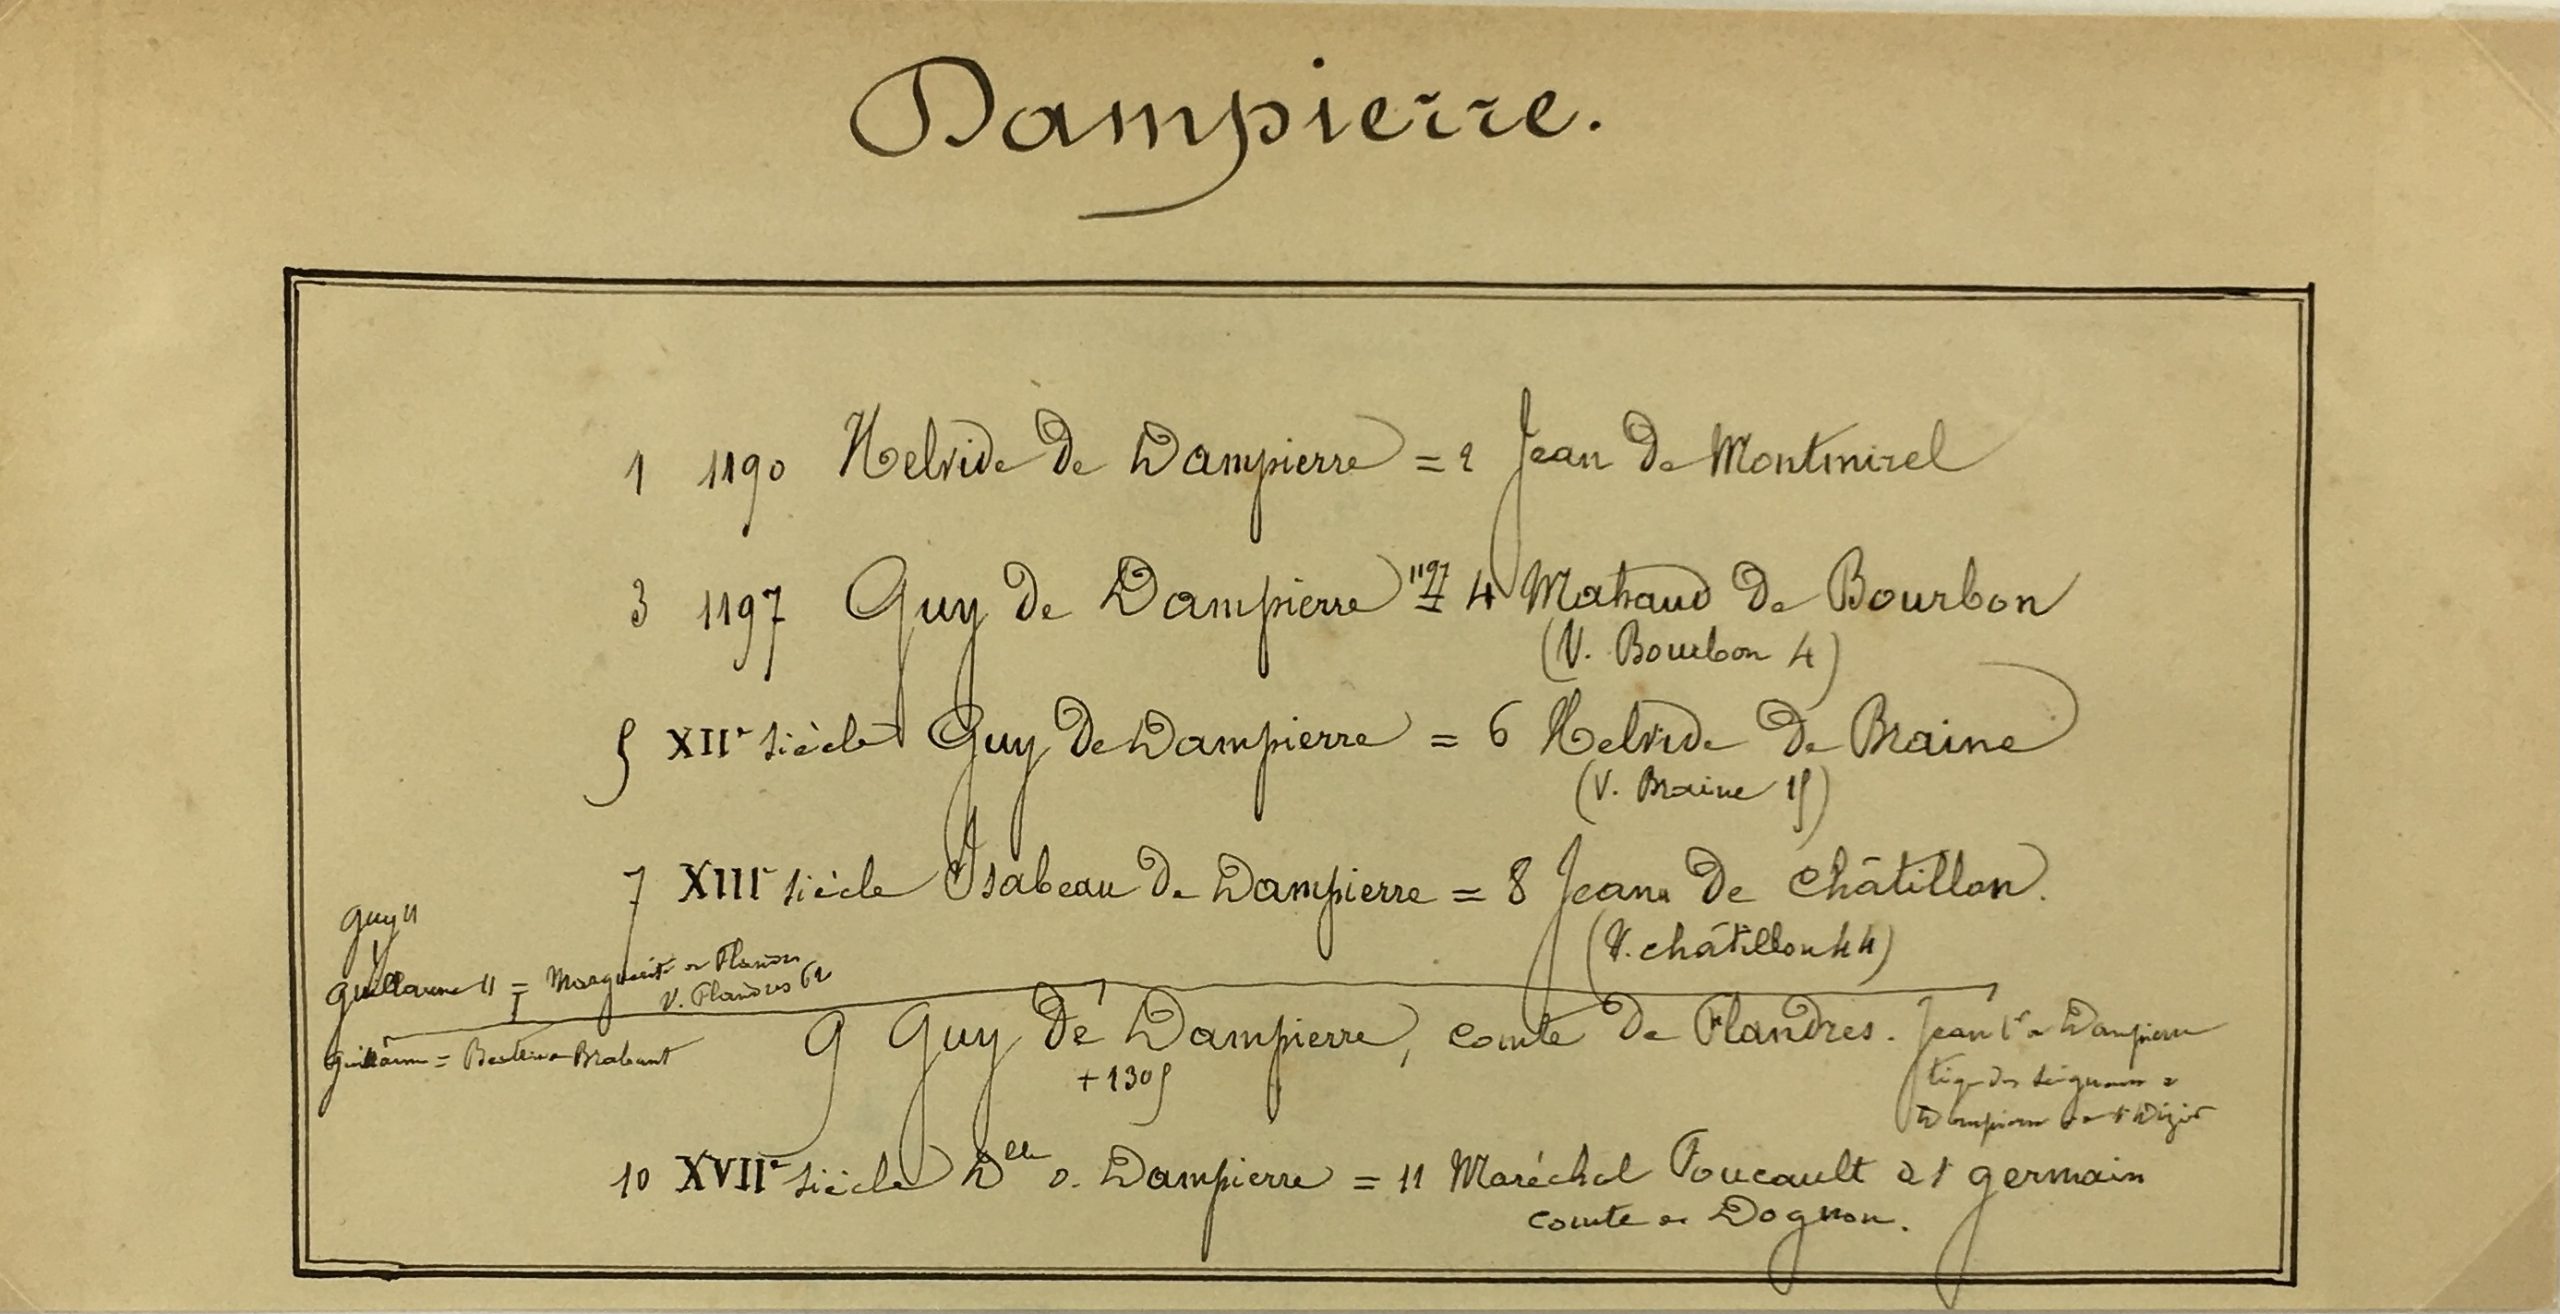 Dampierre.
1 1190 Helvide de Dampierre = 2 Jean de Montmirel
3 1197 Guy de Dampierre 1197 = 4 Mahaud de Bourbon
(V. Bourbon 4)
5 XIIe siècle Guy de Dampierre = 6 Helvide de Braine
(V. Braine 15)
7 XIIIe siècle Isabeau de Dampierre = 8 Jean de Châtillon.
(V. Châtillon 44)
Guy II
Guillaume II = Marguerite de Flandres
V. Flandres 62
9 Guy de Dampierre, comte de Flandres.
+ 1305
Guillaume = Beatrix de Brabant
Jean 1r de Dampierre
tige des seigneurs de
Dampierre de St Dizier
10 XVIIe siècle Dlle de Dampierre = 11 Maréchal Foucault de St Germain
comte de Dognon.